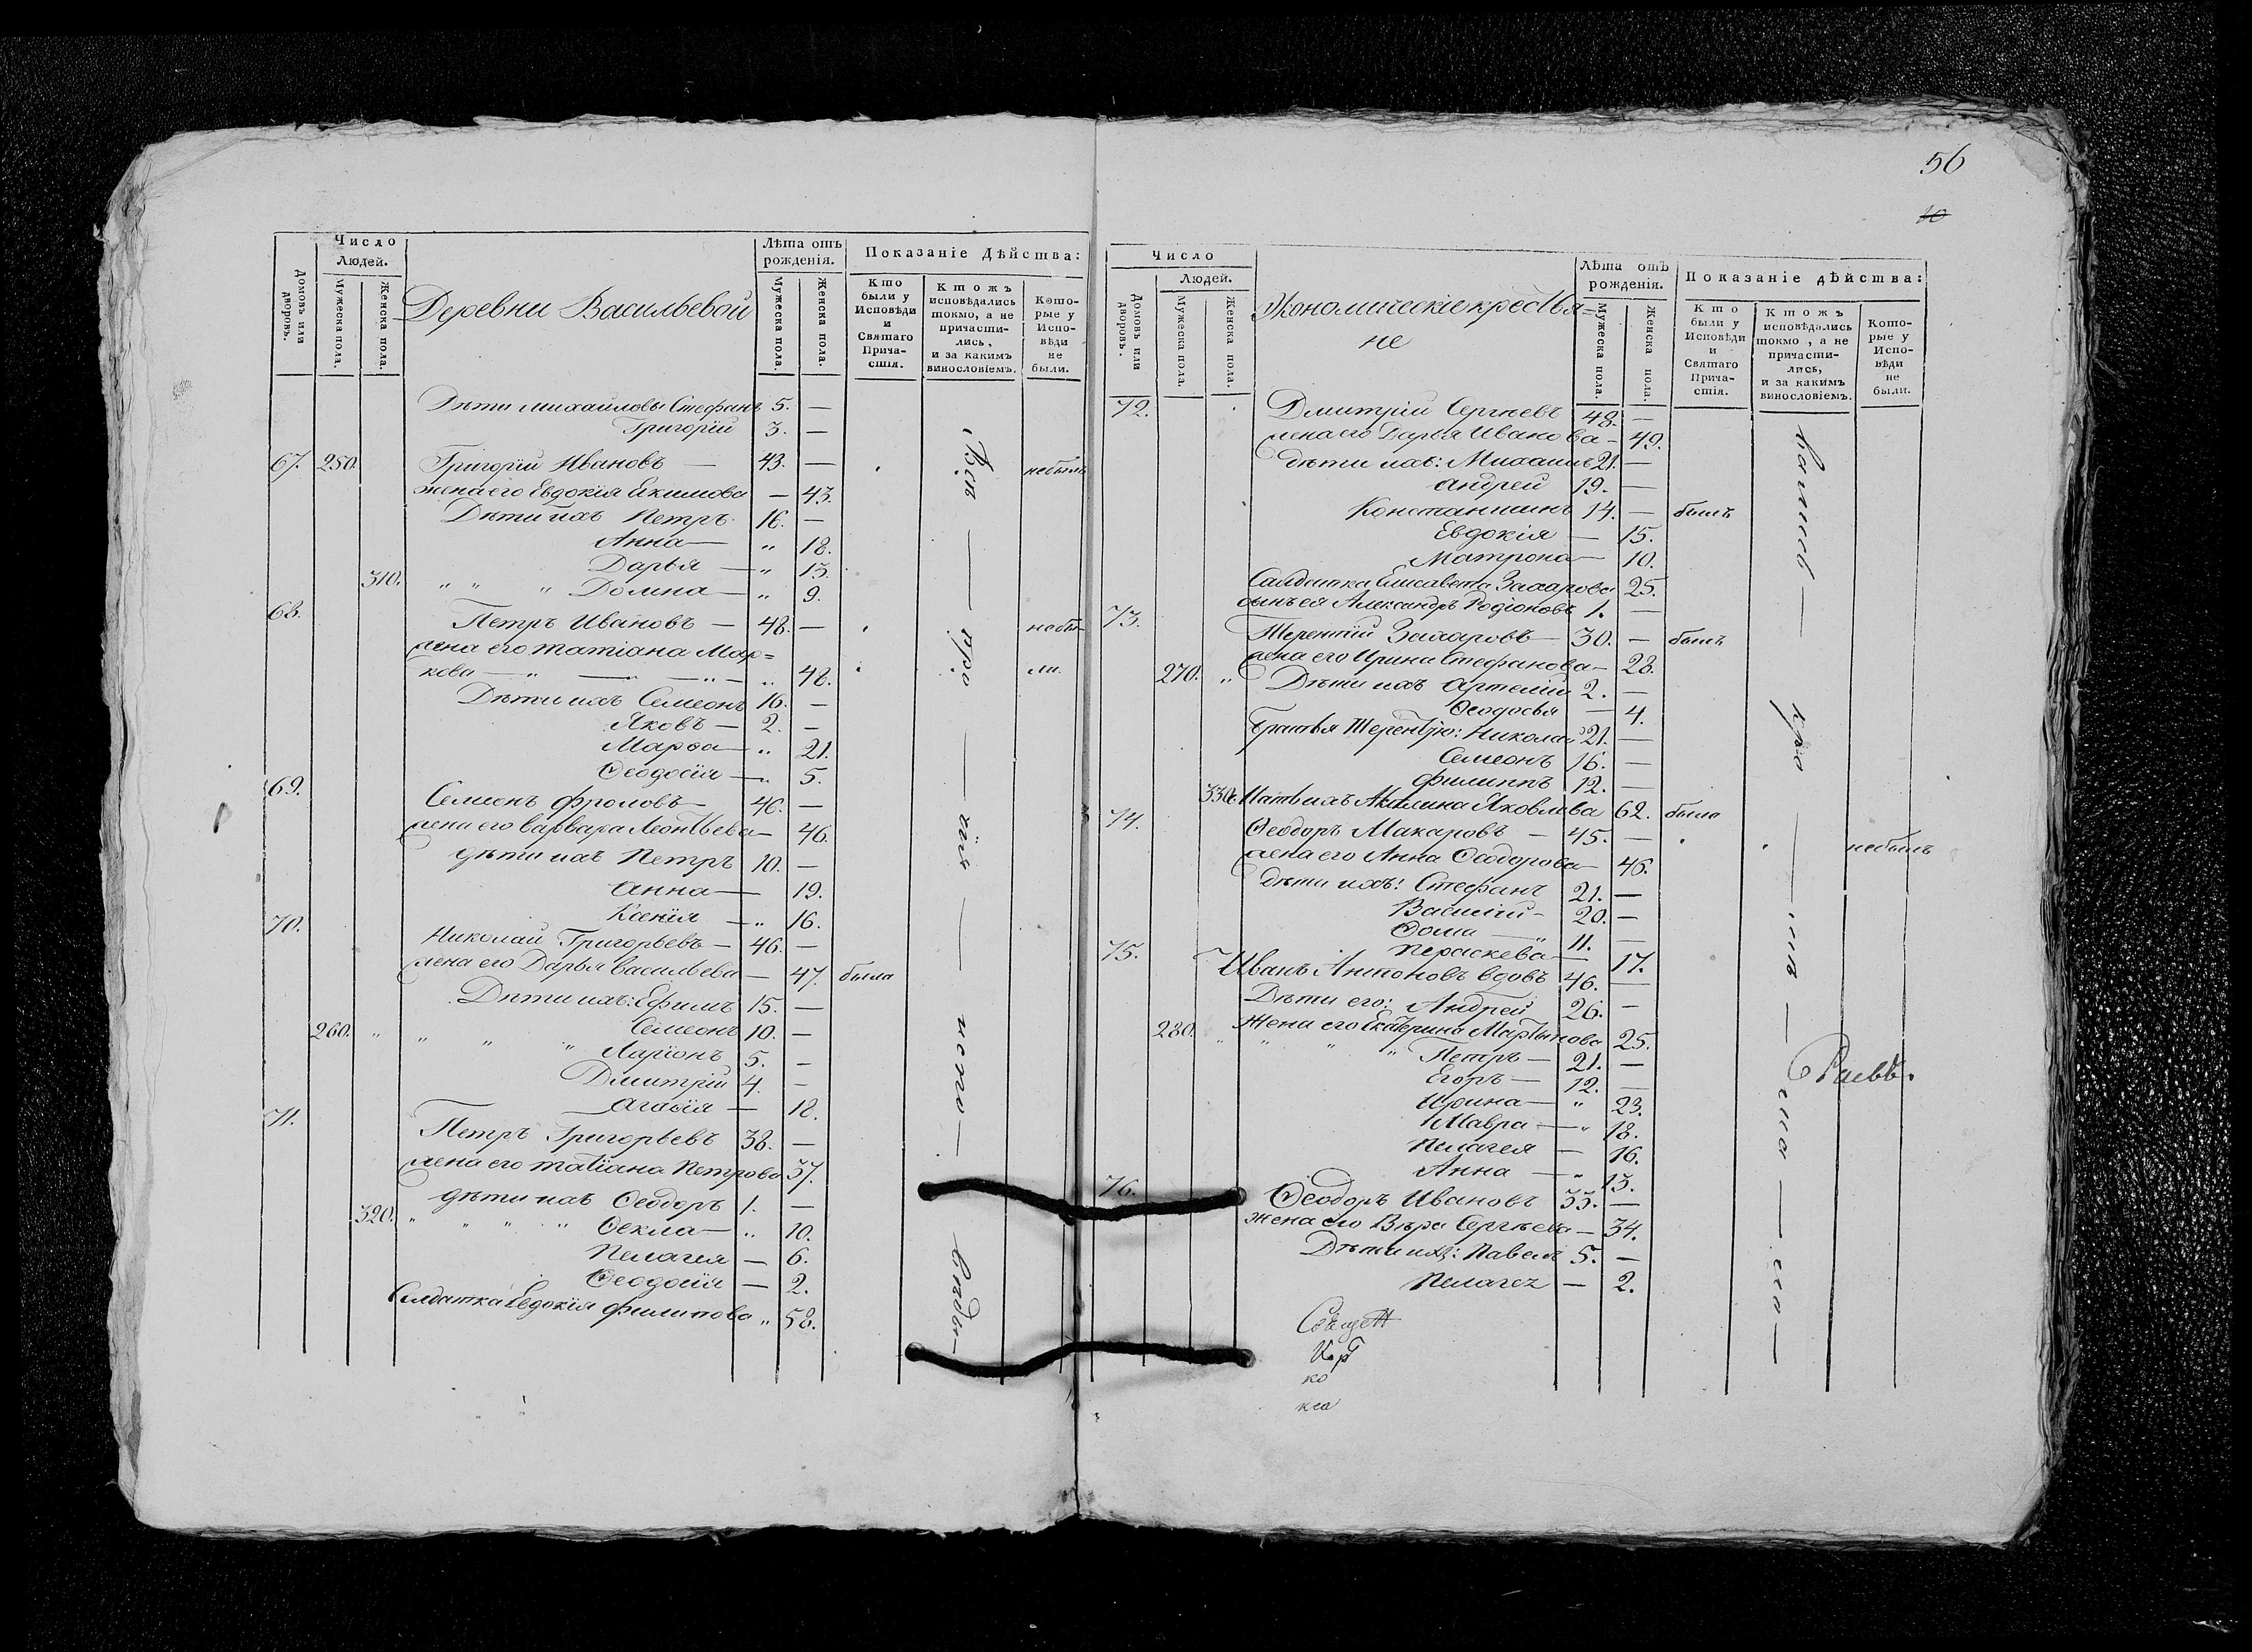 56
10
Число
Людей.
Домовъ или дворовъ.
Мужеска пола.
Женска пола.
Деревни Васильевой
Лѣта отъ рожденія.
Мужеска пола.
Женска пола.
Показаніе Дѣйства:
Кто были у Исповѣди и Святаго Причастія.
Ктожъ исповѣдались токмо, а не причастились, и за какимъ винословіемъ.
Которые у Исповѣди не были.
Дѣти михайловы Стефанъ 5. —
Григорій 3. —
67. 250. Григорій Ивановъ — 43. — небылъ
жена его Евдокія Екимова — 43.
Дѣти ихъ Петръ 16. —
Анна — „ 18.
Дарья — „ 13.
310. „ „ „ Домна — „ 9.
68. Петръ Ивановъ — 48. — небы-
жена его татіана Мар=
кова — „ — „ — „ — „ 48. ли.
Дѣти ихъ Семеонъ 16. —
Яковъ — 2. —
Марѳа — „ 21.
Ѳеодосія — „ 5.
69. Семеонъ фроловъ — 46. —
жена его варвара Леонтьева — 46.
дѣти ихъ Петръ 10. —
Анна — 19.
Ксенія — „ 16.
70. Николай Григорьевъ — 46. —
жена его Дарья васильева — 47. была
Дѣти ихъ: Ефимъ 15. —
260. „ „ „ „ Семеонъ 10. —
Ларіонъ 5. —
Дмитрій 4. —
Агаѳія — 18.
71. Петръ Григорьевъ 38. —
жена его татіана Петрова 37.
дѣти ихъ Ѳеодоръ 1. —
320. „ „ „ „ Ѳекла — „ 10.
Пелагея — 6.
Ѳеодосія — 2.
Салдатка Евдокія филипова „ 58.
Всѣ — — про — — сія — — испо — — вѣди —
Число
Людей.
Домовъ или дворовъ.
Мужеска пола.
Женска пола.
Экономическіе крестья=
не
Лѣта отъ рожденія.
Мужеска пола.
Женска пола.
Показаніе дѣйства:
Кто были у Исповѣди и Святаго Причастія.
Ктожъ исповѣдались токмо, а не причастились, и за какимъ винословіемъ.
Которые у Исповѣди не были.
72. Дмитрій Сергѣевъ 48. —
жена его Дарья Иванова — 49.
дѣти ихъ: Михаилъ 21. —
андрей 19. —
Константинъ 14. — былъ
Евдокія — 15.
Матрона — 10.
Салдатка Елисавета Захарова 25.
сынъ ея Александръ Родіоновъ 1. —
73. Терентій Захаровъ — 30. — былъ
жена его Ирина Стефанова — 28.
270. „ Дѣти ихъ Артемій 2. —
Ѳеодосья — 4.
Братья Терентію: Николай 21. —
Семеонъ 16. —
филиппъ 12. —
330. Мать ихъ Акилина Яковлева 62. была
74. Ѳеодоръ Макаровъ — 45. — небылъ
жена его Анна Ѳеодорова — 46.
дѣти ихъ: Стефанъ 21. —
Василій — 20. —
Ѳома — „ 11. —
Пераскева — 17.
75. Иванъ Антоновъ вдовъ 46. —
Дѣти его: Андрей 26. —
280. „ Жена его Екатерина Мартынова 25.
„ „ „ Петръ — 21. —
Егоръ — 12. —
Ирина — „ 23.
Мавра — „ 18.
Пелагея — 16.
Анна — „ 13.
76. Ѳеодоръ Ивановъ 33. —
жена его Вѣра Сергѣева — 34.
Дѣти ихъ: Павелъ 5. —
Пелагея — 2.